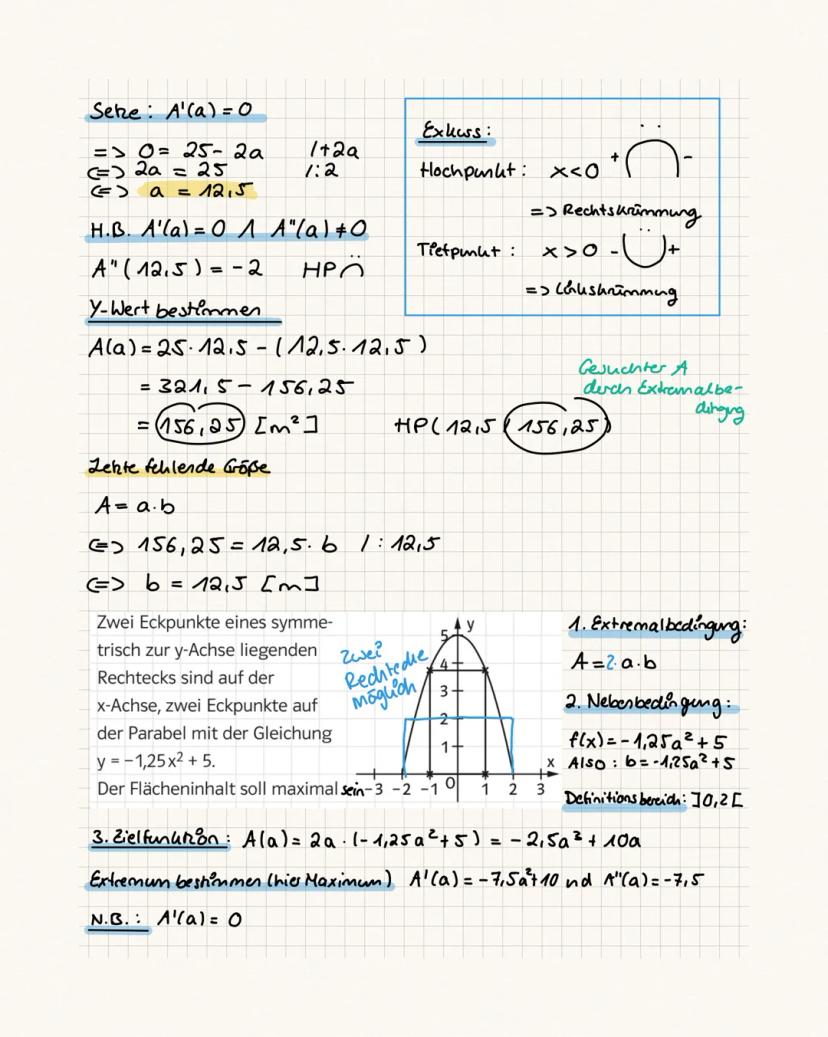 Setze: A'(a) = 0
=> 0 = 25 - 2a /+2a
<=> 2a = 25 /:2
<=> a = 12,5
H.B. A'(a) = 0 ∧ A"(a) ≠ 0
A"(12,5) = -2 HP
Y-Wert bestimmen
A(a) = 25 · 12,5 - (12,5 · 12,5)
= 321,5 - 156,25
= 156,25 [m²] HP(12,5/156,25)
Exkurs:
Hochpunkt: x<0 + -
=> Rechtskrümmung
Tiefpunkt: x>0 - +
=> Linkskrümmung
Gesuchter A
durch Extremalbe-
dingung
Letzte fehlende Größe
A = a·b
<=> 156,25 = 12,5 · b /: 12,5
<=> b = 12,5 [m]
Zwei Eckpunkte eines symme-
trisch zur y-Achse liegenden
Rechtecks sind auf der
x-Achse, zwei Eckpunkte auf
der Parabel mit der Gleichung
y = −1,25x² + 5.
Der Flächeninhalt soll maximal sein
Zwei
Rechtecke
möglich
y
5
4
3
2
1
x
-3 -2 -1 0 1 2 3
1. Extremalbedingung:
A = 2·a·b
2. Nebenbedingung:
f(x) = -1,25a² + 5
Also: b = -1,25a² + 5
Definitionsbereich: ]0,2[
3. Zielfunktion: A(a) = 2a · (-1,25a² + 5) = -2,5a³ + 10a
Extremum bestimmen (hier Maximum) A'(a) = -7,5a² + 10 nd A"(a) = -7,5
N.B.: A'(a) = 0